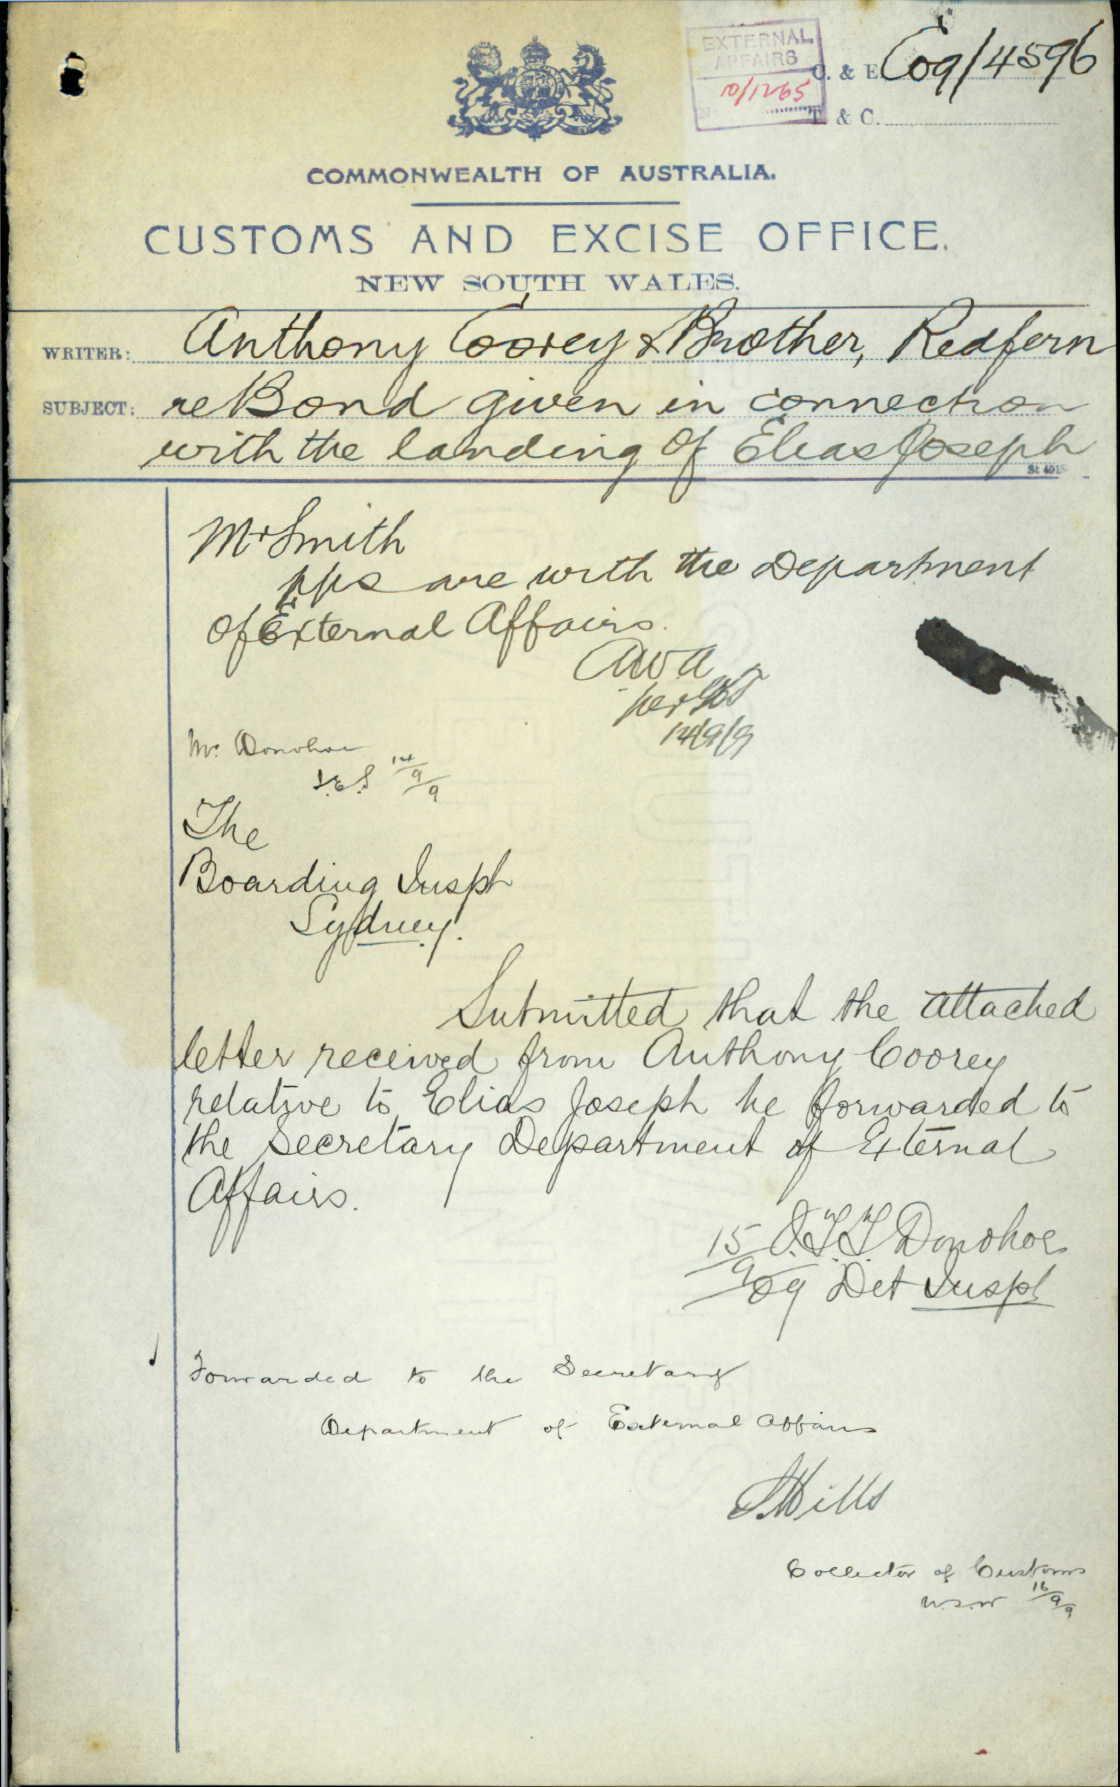 EXTERNAL
AFFAIRS
10/1265
C. & E. C09/4596
T. & C.
COMMONWEALTH OF AUSTRALIA.
CUSTOMS AND EXCISE OFFICE.
NEW SOUTH WALES.
WRITER: Anthony Coorey & Brother, Redfern
SUBJECT: re Bond given in connection
with the landing of Elias Joseph
Mr Smith
pps are with the Department
of External Affairs.
AWA
per
14/9/9
Mr. Donohoe
14/9/9
The
Boarding Inspr
Sydney.
Submitted that the attached
letter received from Anthony Coorey
relative to Elias Joseph be forwarded to
the Secretary Department of External
Affairs.
15/9/09 Donohoe
Det Inspr
Forwarded to the Secretary
Department of External Affairs
Mills
Collector of Customs
N.S.W 16/9/9